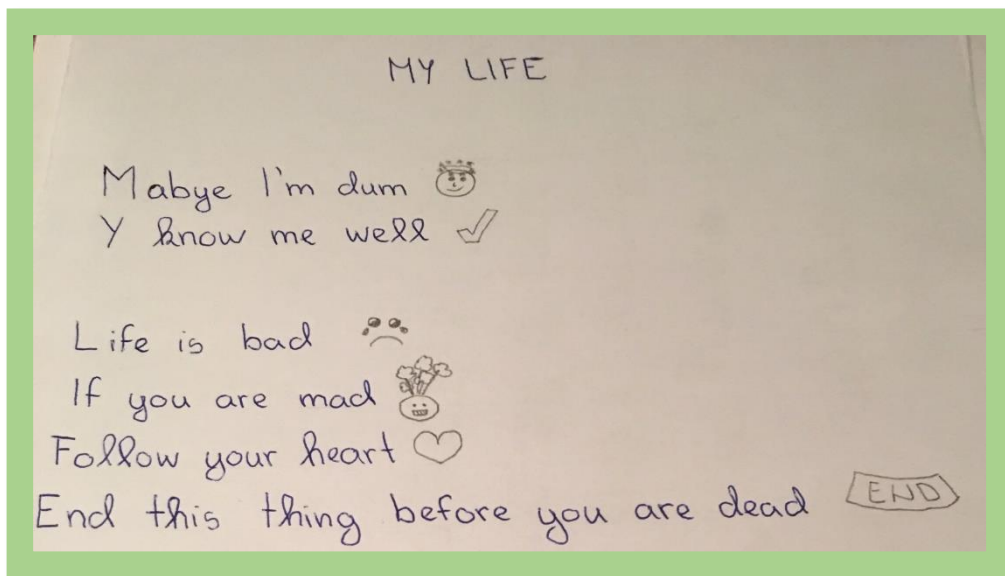 MY LIFE
Mabye I'm dum
Y know me well
Life is bad
If you are mad
Follow your heart
End this thing before you are dead END